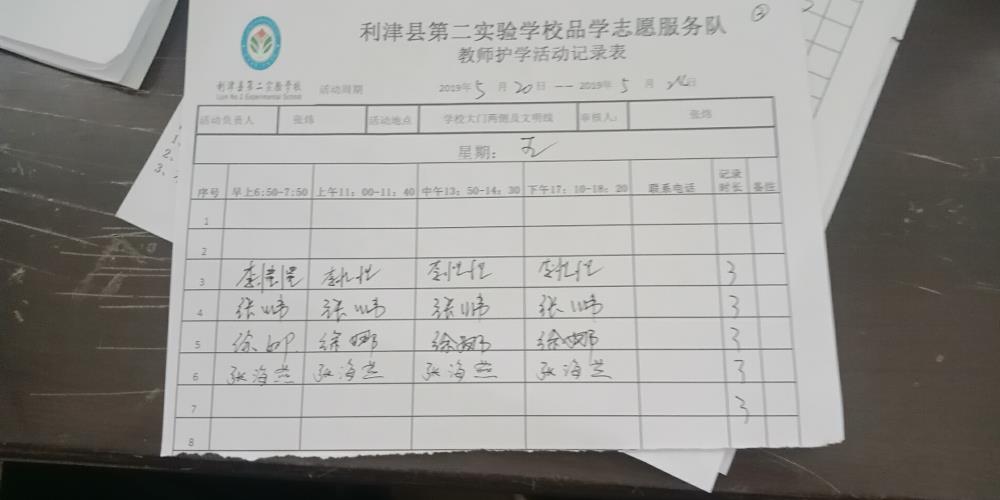 ②
利津县第二实验学校品学志愿服务队
教师护学活动记录表
利津县第二实验学校
活动周期 2019年5月20日 -- 2019年5月24日
活动负责人 张炜 活动地点 学校大门两侧及文明线 审核人: 张炜
星期: 五
序号 早上6:50-7:50 上午11:00-11:40 中午13:50-14:30 下午17:10-18:20 联系电话 记录时长 备注
1
2
3 3
4 张炜 张炜 张炜 张炜 3
5 徐娜 徐娜 徐娜 徐娜 3
6 张海燕 张海燕 张海燕 张海燕 3
7 3
8